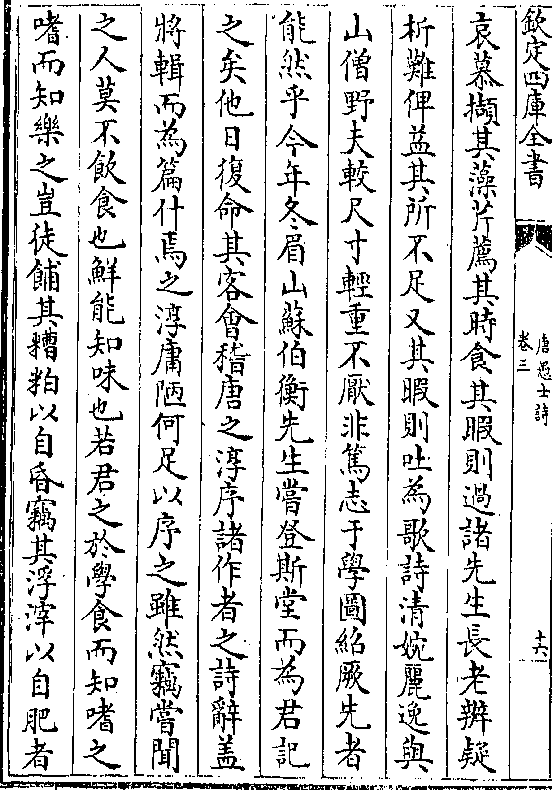 欽定四庫全書
唐愚士詩
卷三
十六
哀慕擷其藻芹薦其時食其暇則過諸先生長老辨疑
析難俾益其所不足又其暇則吐為歌詩清婉麗逸與
山僧野夫較尺寸輕重不厭非篤志于學圖紹厥先者
能然乎今年冬眉山蘇伯衡先生嘗登斯堂而為君記
之矣他日復命其客會稽唐之淳序諸作者之詩辭盖
將輯而為篇什焉之淳庸陋何足以序之雖然竊嘗聞
之人莫不飲食也鮮能知味也若君之於學食而知嗜之
嗜而知樂之豈徒餔其糟粕以自昏竊其浮滓以自肥者